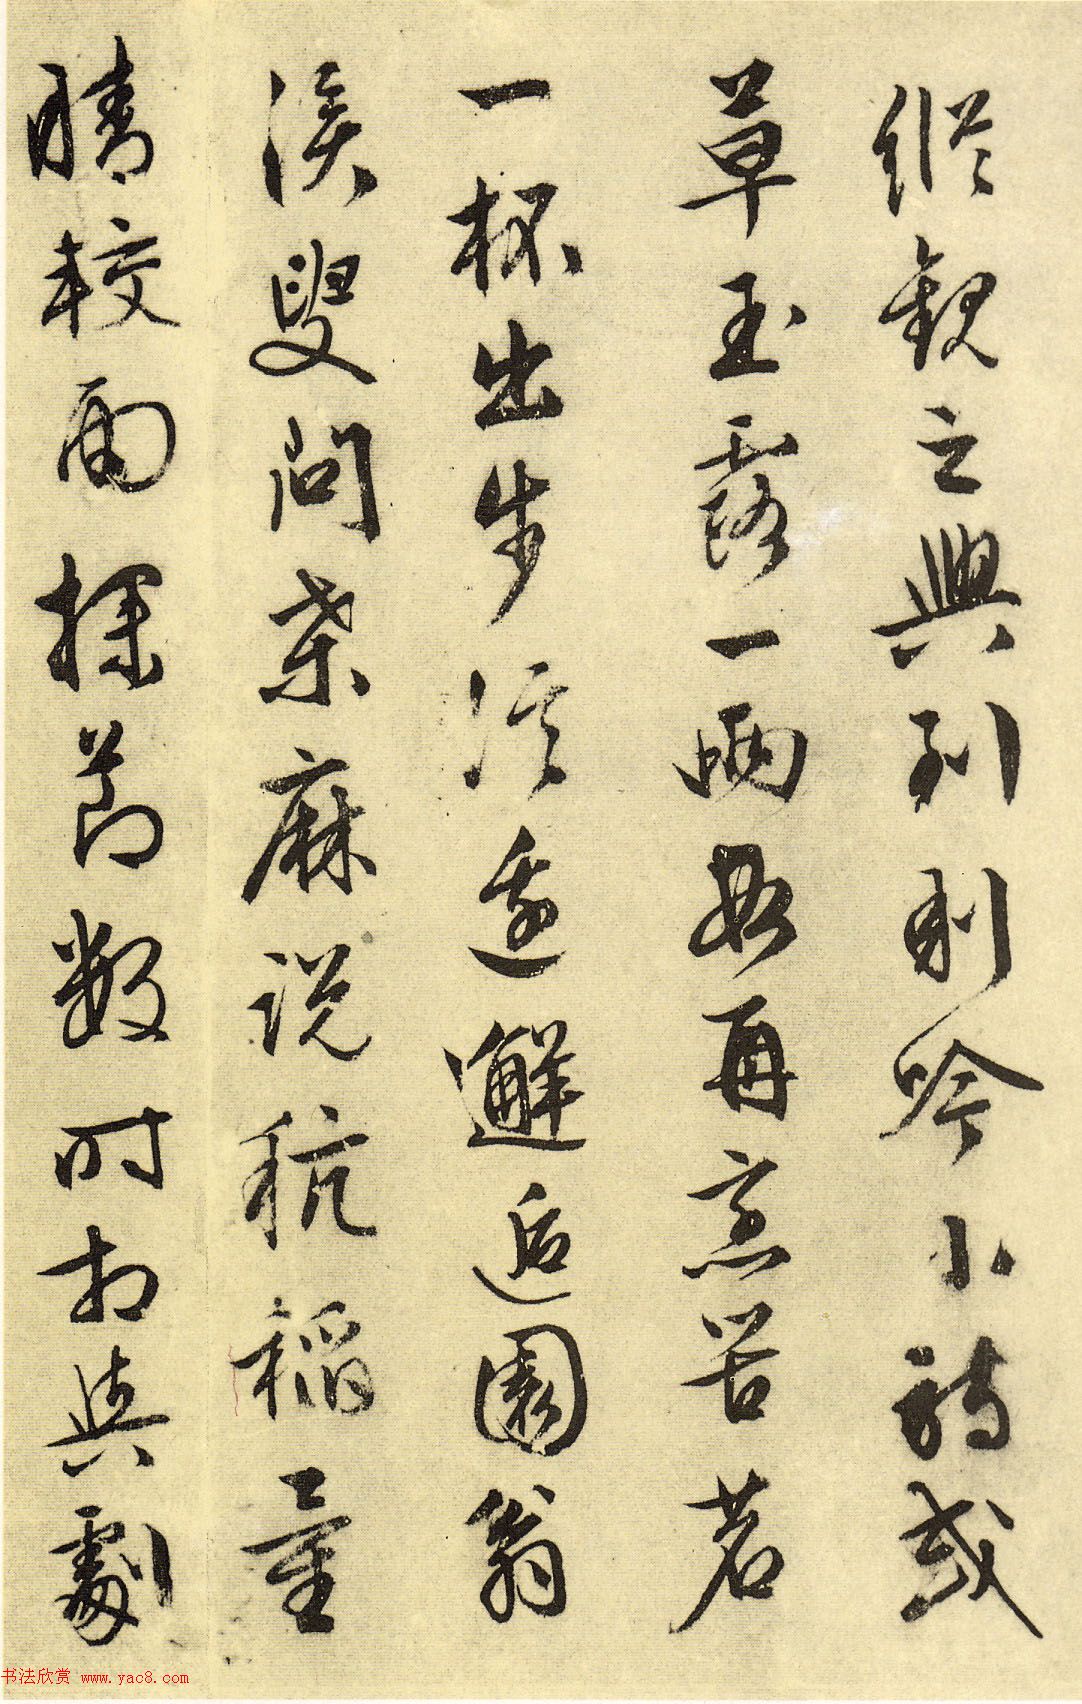 縱觀之興到則吟小詩或
草玉露一兩段再烹苦茗
一杯出步溪邊邂逅園翁
溪叟問桒麻說秔稻量
晴較雨探節數時相與劇
书法欣赏 www.yac8.com